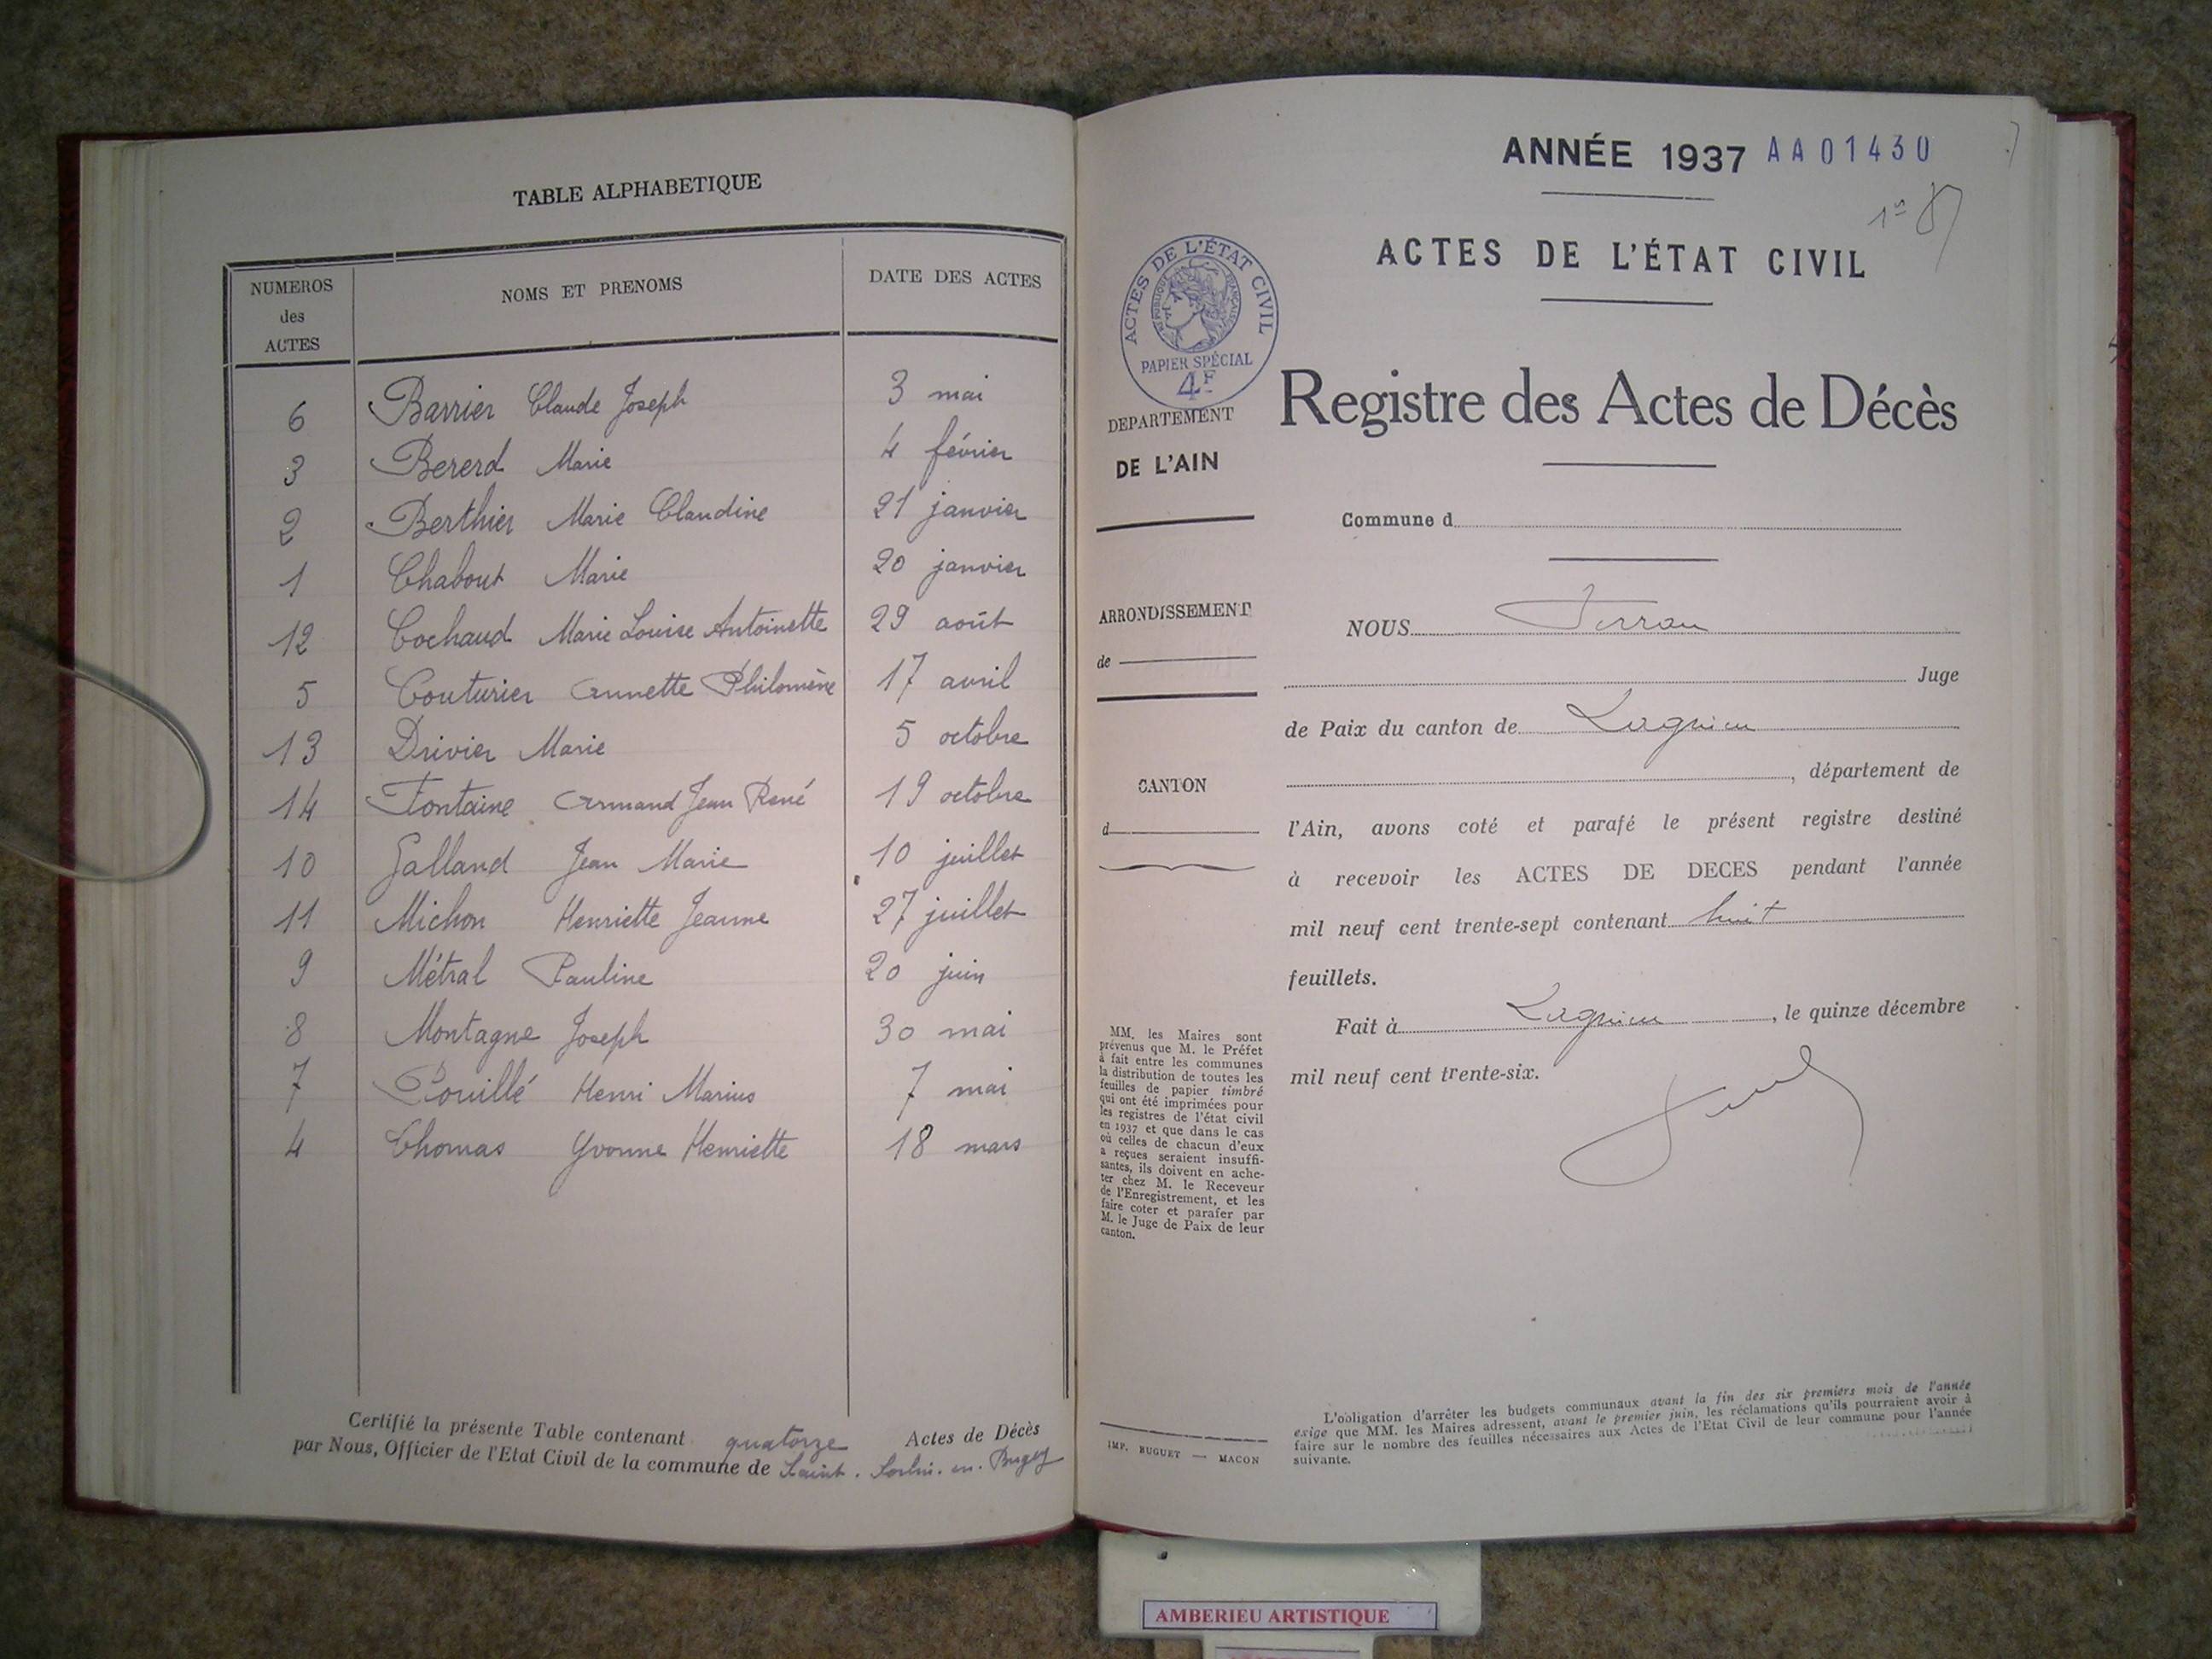 TABLE ALPHABETIQUE
NUMEROS des ACTES
NOMS ET PRENOMS
DATE DES ACTES
6 Barrier Claude Joseph 3 mai
3 Bererd Marie 4 février
2 Berthier Marie Claudine 21 janvier
1 Chabout Marie 20 janvier
12 Cochaud Marie Louise Antoinette 29 août
5 Couturier Annette Philomène 17 avril
13 Drivier Marie 5 octobre
14 Fontaine Armand Jean René 19 octobre
10 Galland Jean Marie 10 juillet
11 Michon Henriette Jeanne 27 juillet
9 Métral Pauline 20 juin
8 Montagne Joseph 30 mai
7 Pouillé Henri Marius 7 mai
4 Thomas Yvonne Henriette 18 mars
Certifié la présente Table contenant quatorze Actes de Décès
par Nous, Officier de l'Etat Civil de la commune de Saint. Sorlin. en. Bugey
ANNÉE 1937 AA01430
ACTES DE L'ÉTAT CIVIL
ACTES DE L'ÉTAT CIVIL
RÉPUBLIQUE FRANÇAISE
PAPIER SPÉCIAL
4F
DEPARTEMENT
DE L'AIN
ARRONDISSEMENT
de
CANTON
d
Registre des Actes de Décès
Commune d
NOUS
Juge
de Paix du canton de Lagnieu
, département de
l'Ain, avons coté et parafé le présent registre destiné
à recevoir les ACTES DE DECES pendant l'année
mil neuf cent trente-sept contenant huit
feuillets.
Fait à Lagnieu, le quinze décembre
mil neuf cent trente-six.
MM. les Maires sont
prévenus que M. le Préfet
à fait entre les communes
la distribution de toutes les
feuilles de papier timbré
qui ont été imprimées pour
les registres de l'état civil
en 1937 et que dans le cas
où celles de chacun d'eux
a reçues seraient insuffi-
santes, ils doivent en ache-
ter chez M. le Receveur
de l'Enregistrement, et les
faire coter et parafer par
M. le Juge de Paix de leur
canton.
IMP. BUGUET — MACON
L'obligation d'arrêter les budgets communaux avant la fin des six premiers mois de l'année
exige que MM. les Maires adressent, avant le premier juin, les réclamations qu'ils pourraient avoir à
faire sur le nombre des feuilles nécessaires aux Actes de l'Etat Civil de leur commune pour l'année
suivante.
AMBERIEU ARTISTIQUE